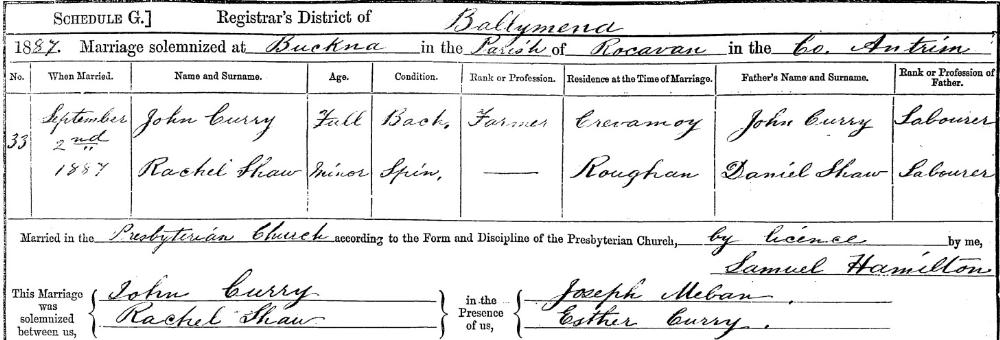 SCHEDULE G.] Registrar's District of Ballymena
1887. Marriage solemnized at Buckna in the Parish of Rocavan in the Co. Antrim
No. When Married. Name and Surname. Age. Condition. Rank or Profession. Residence at the Time of Marriage. Father's Name and Surname. Rank or Profession of Father.
33 September 2nd 1887 John Curry Full Bach. Farmer Crevamoy John Curry Labourer
Rachel Shaw Minor Spin. — Roughan Daniel Shaw Labourer
Married in the Presbyterian Church according to the Form and Discipline of the Presbyterian Church, by licence by me,
Samuel Hamilton
This Marriage was solemnized between us, { John Curry
Rachel Shaw } in the Presence of us, { Joseph Meban.
Esther Curry. }